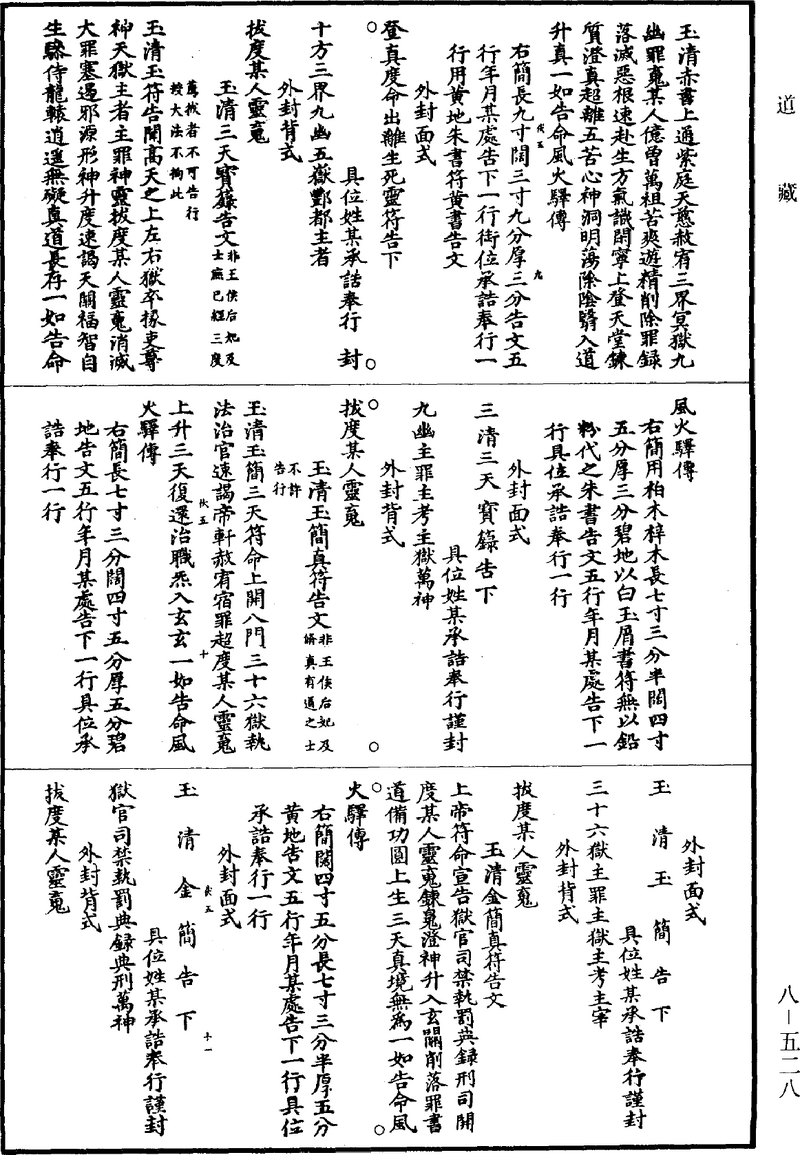 道藏
玉清赤書上通紫庭天慈赦宥三界冥獄九
幽罪䰟某人億曾萬祖苦爽遊精削除罪録
落滅惡根速赴生方氣識開寧上登天堂鍊
質澄真超離五苦心神洞明蕩除陰翳入道
升真一如告命風火驛傳
右簡長九寸闊三寸九分厚三分告文五
行年月某處告下一行銜位承誥奉行一
行用黃地朱書符黃書告文
外封面式
登真度命出離生死靈符告下
具位姓某承誥奉行 封
十方三界九幽五嶽酆都主者
外封背式
拔度某人靈䰟
玉清三天寶籙告文非王侯后妃及士庶已經三度
萬拔者不可告行
校大法不拘此
玉清玉符告開高天之上左右獄卒掾吏尊
神天獄主者主罪神靈拔度某人靈䰟消滅
大罪塞遏邪源形神升度速謁天關福智自
生驂侍龍轅逍遥無礙真道長存一如告命
風火驛傳
右簡用柏木梓木長七寸三分半闊四寸
五分厚三分碧地以白玉屑書符無以鉛
粉代之朱書告文五行年月某處告下一
行具位承誥奉行一行
外封面式
三清三天寶籙告下
具位姓某承誥奉行謹封
九幽主罪主考主獄萬神
外封背式
拔度某人靈䰟
玉清玉簡真符告文非王侯后妃及脩真有道之士
不許
告行
玉清玉簡三天符命上開八門三十六獄執
法治官速謁帝軒赦宥宿罪超度某人靈䰟
上升三天復還治職炁入玄玄一如告命風
火驛傳
右簡長七寸三分闊四寸五分厚五分碧
地告文五行年月某處告下一行具位承
誥奉行一行
外封面式
玉清玉簡告下
具位姓某承誥奉行謹封
三十六獄主罪主獄主考主宰
外封背式
拔度某人靈䰟
玉清金簡真符告文
上帝符命宣告獄官司禁執罰典録刑司開
度某人靈䰟鍊䰟澄神升入玄關削落罪書
道備功圓上生三天真境無爲一如告命風
火驛傳
右簡闊四寸五分長七寸三分半厚五分
黃地告文五行年月某處告下一行具位
承誥奉行一行
外封面式
玉清金簡告下
具位姓某承誥奉行謹封
獄官司禁執罰典録典刑萬神
外封背式
拔度某人靈䰟
八—五二八